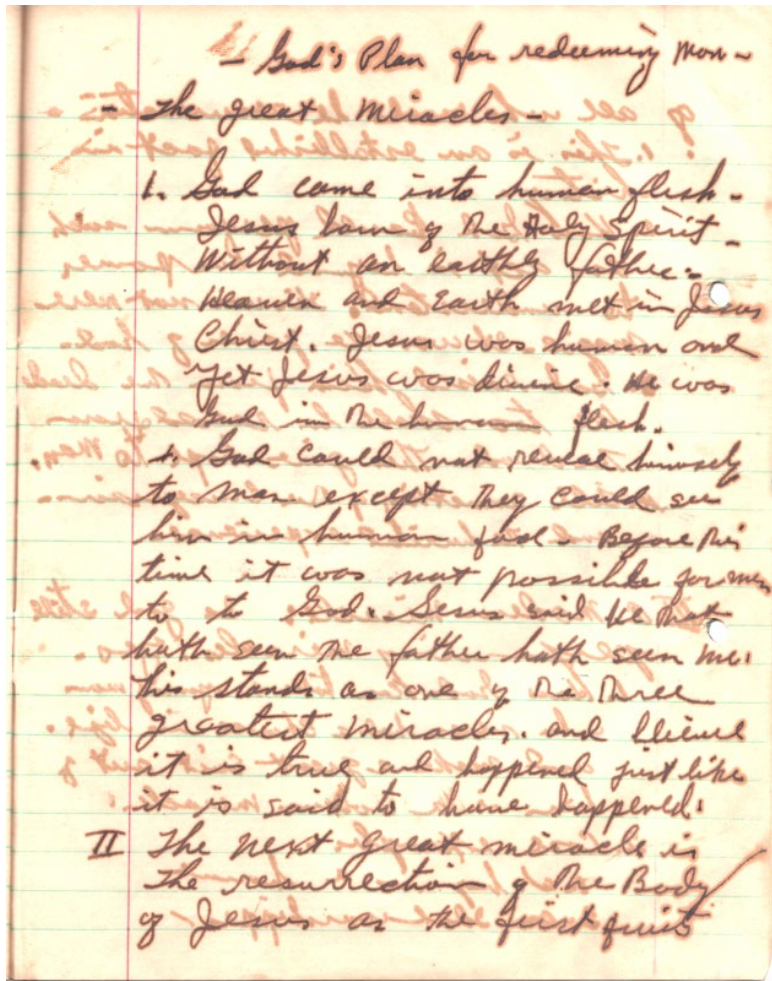 - God's Plan for redeeming Man -
- The great Miracles -
1. God came into human flesh -
Jesus born of the Holy Spirit -
Without an earthly father -
Heaven and Earth met in Jesus
Christ. Jesus was human and
yet Jesus was divine. He was
God in the human flesh.
1. God could not reveal himself
to man except they could see
him in human . Before this
time it was not possible for men
to to God. Jesus said he that
hath seen the father hath seen me.
This stands as one of the three
greatest miracles. and
it is true and happened just like
it is said to have happened.
II The next great miracle is
the resurrection of the Body
of Jesus as the first fruits